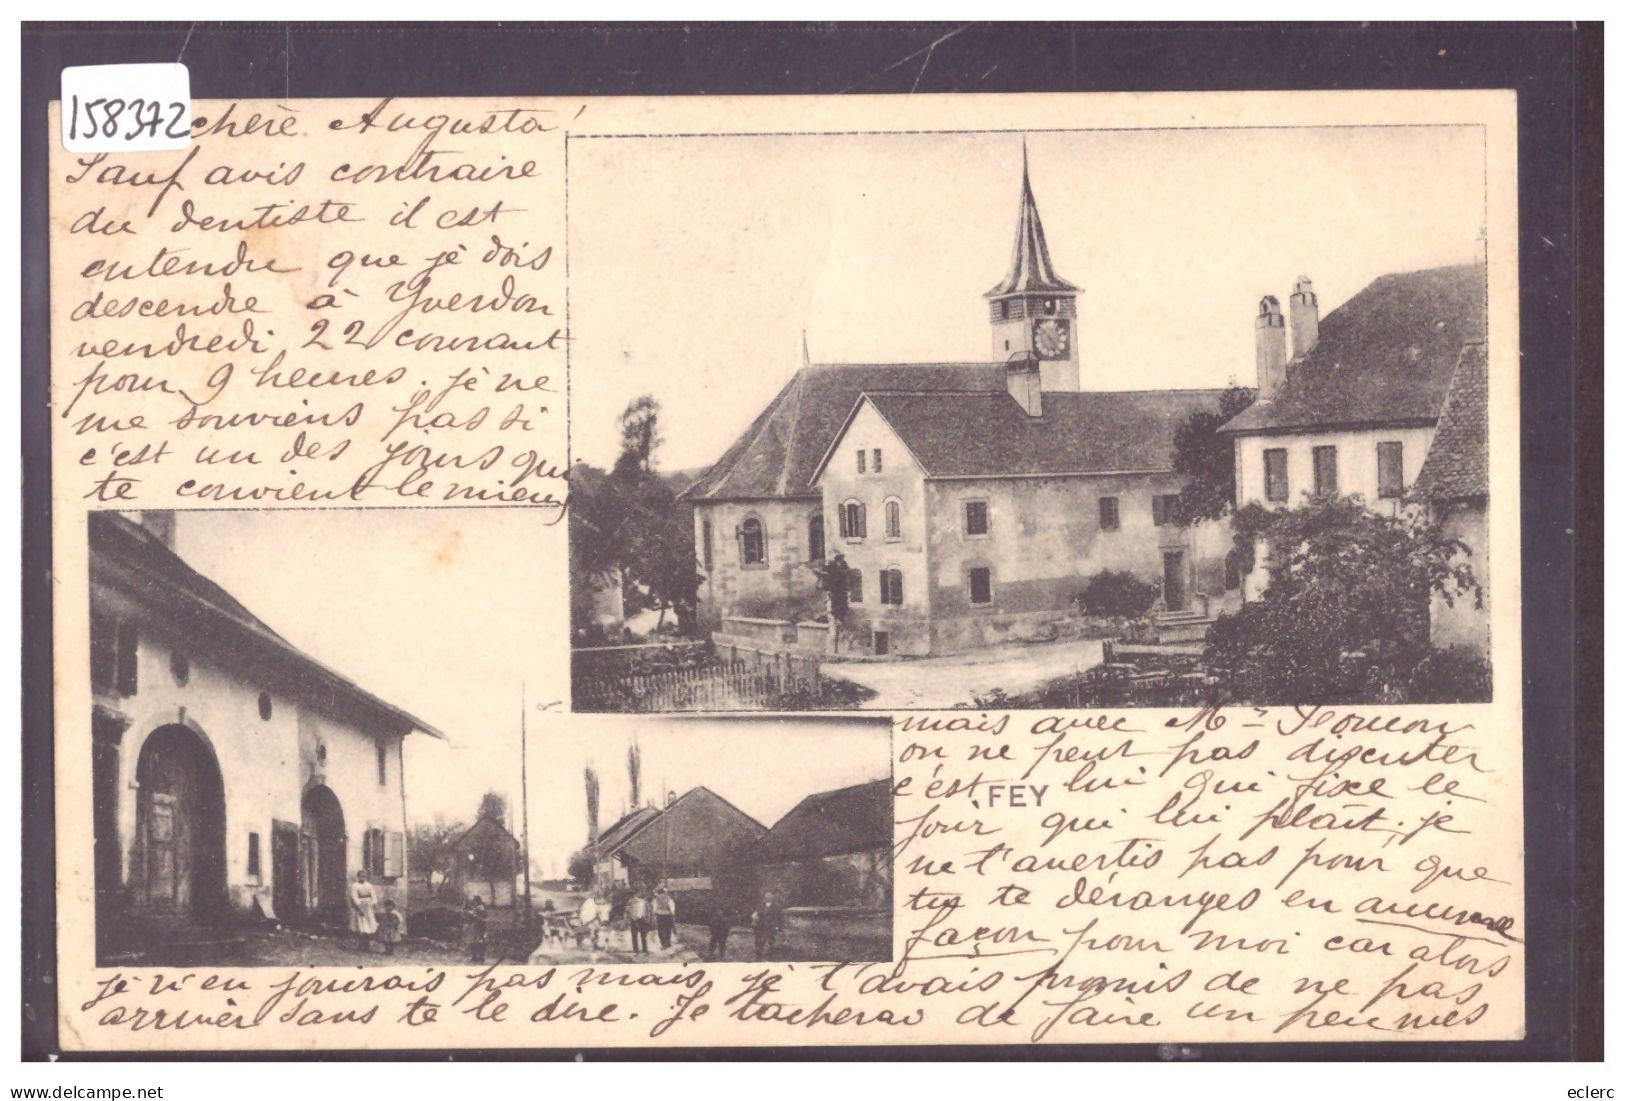 158372
chère Augusta!
Sauf avis contraire
du dentiste il est
entendu que je dois
descendre à Yverdon
vendredi 22 courant
pour 9 heures. je ne
me souviens pas si
c'est un des jours qui
te convient le mieux
mais avec Mr
on ne peut pas discuter
c'est lui qui fixe le
FEY
jour qui lui plaît. je
ne t'avertis pas pour que
tu te déranges en aucune
façon pour moi car alors
je n'en jouirais pas mais je t'avais promis de ne pas
arriver sans te le dire. Je tacherai de faire un peu mes
eclerc